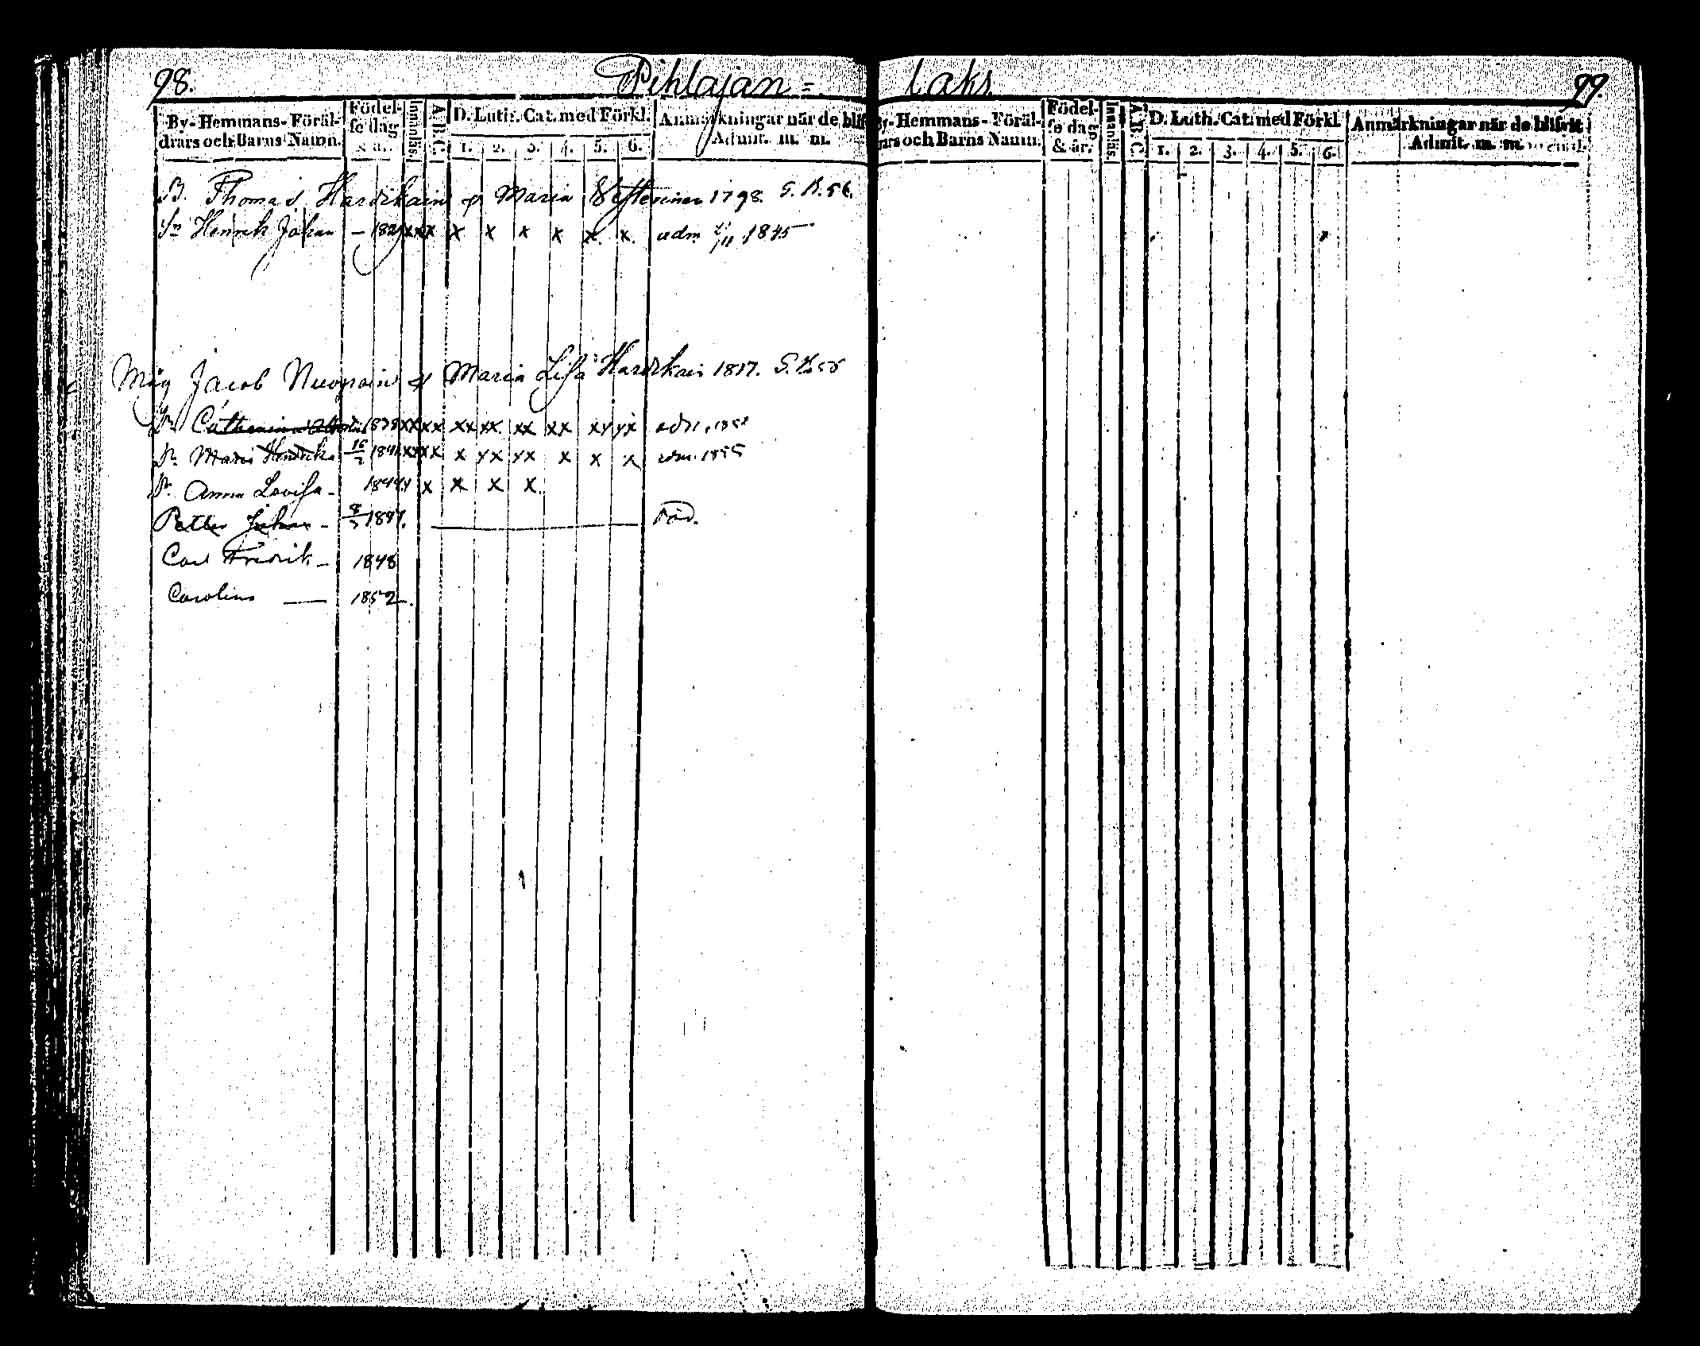 98. Pihlajan=
By- Hemmans- Föräl-
drars och Barns Namn.
Födel-
se dag
& år.
Innanläs.
A.B.C.
D. Luth. Cat. med Förkl.
1. 2. 3. 4. 5. 6.
Anmärkningar när de blif
Admit. m. m.
B. Thomas Maria 1798. S. B. 56.
Sn Henrik Johan – x x x x x x x x x adm 1845
Måg Jacob Maria Lisa 1817.
Catharina 1838 xx xx xx xx xx xx xx xx
Maria Hendrika 16/2 x xx xx x x x adm. 1855
Anna Lovisa – 1844 x x x x
Petter Johan – 1847. Död.
Carl Fredrik – 1848
Carolina — 1852.
laks 99.
By- Hemmans- Föräl-
rars och Barns Namn.
Födel-
se dag
& år.
Innanläs.
A.B.C.
D. Luth. Cat. med Förkl
1. 2. 3. 4. 5. 6.
Anmärkningar när de blifvit
Admit. m. m.